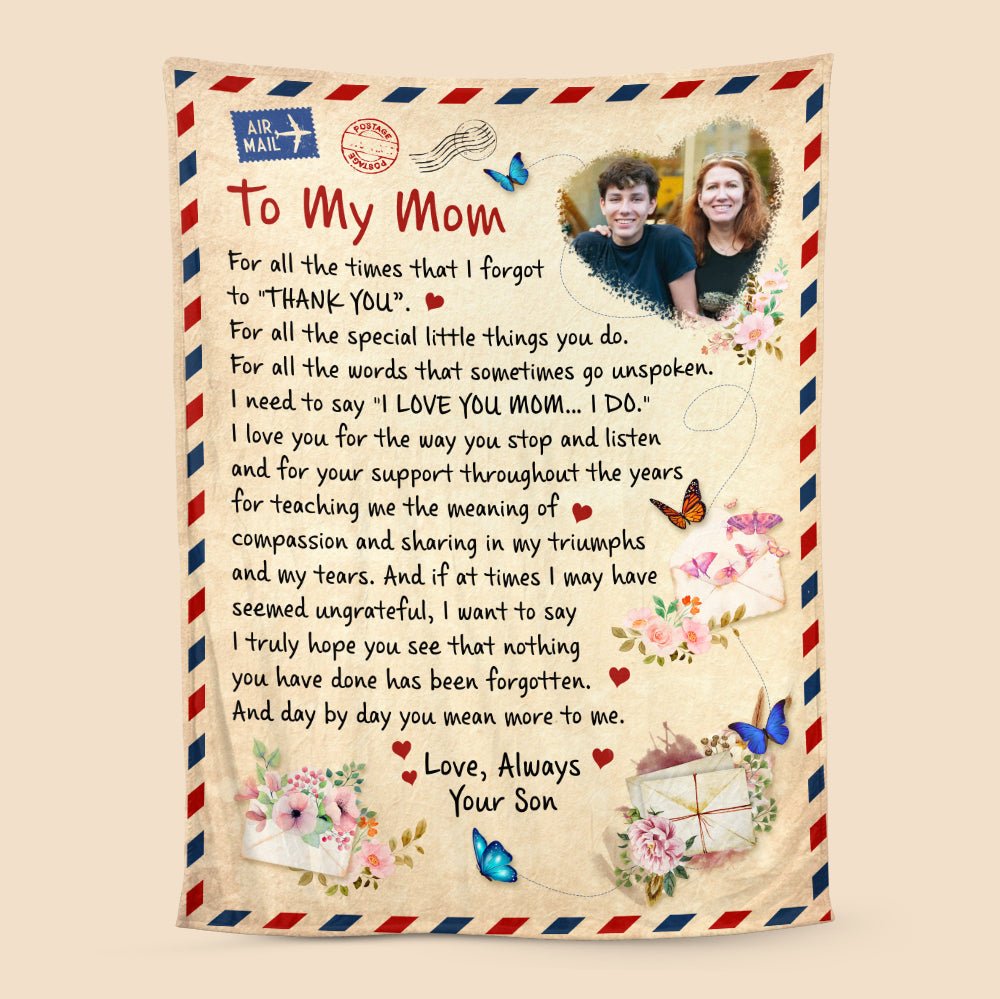 AIR
MAIL
POSTAGE
POSTAGE
To My Mom
For all the times that I forgot
to "THANK YOU”.
For all the special little things you do.
For all the words that sometimes go unspoken.
I need to say "I LOVE YOU MOM... I DO."
I love you for the way you stop and listen
and for your support throughout the years
for teaching me the meaning of
compassion and sharing in my triumphs
and my tears. And if at times I may have
seemed ungrateful, I want to say
I truly hope you see that nothing
you have done has been forgotten.
And day by day you mean more to me.
Love, Always
Your Son